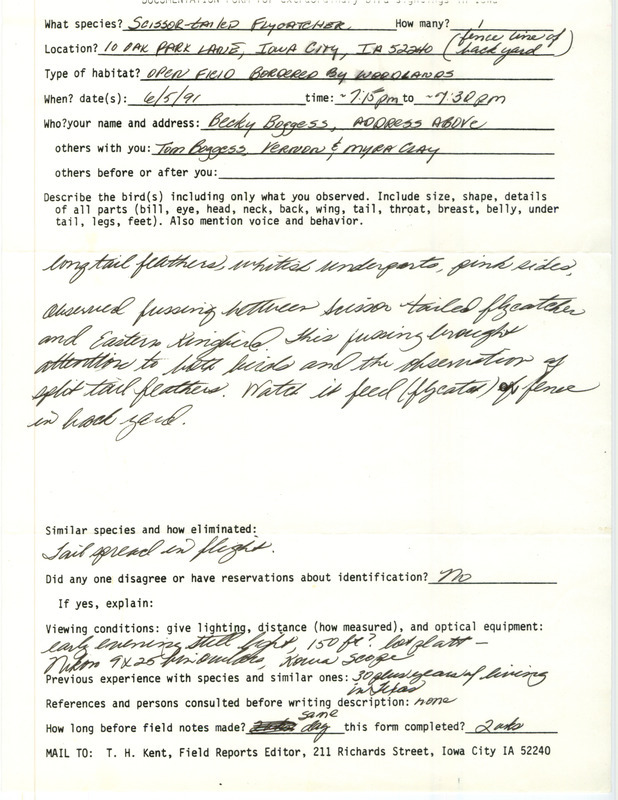 DOCUMENTATION FORM for extraordinary bird sightings in Iowa
What species? Scissor-tailed Flycatcher How many? 1
Location? 10 Oak Park Lane, Iowa City, IA 52240 (fence line of back yard)
Type of habitat? Open field bordered by woodlands
When? date(s): 6/5/91 time: ~7:15pm to ~7:30pm
Who?your name and address: Becky Boggess, address above
others with you: Tom Boggess, Vernon & Myra Clay
others before or after you:
Describe the bird(s) including only what you observed. Include size, shape, details
of all parts (bill, eye, head, neck, back, wing, tail, throat, breast, belly, under
tail, legs, feet). Also mention voice and behavior.
long tail feathers, whitish underparts, pink sides,
Observed fussing between scissor-tailed flycatcher
and Eastern Kingbird. This fussing brought
attention to both birds and the observation of
split tail feathers. Watch it feed (flycatch) off fence
in back yard.
Similar species and how eliminated:
Tail spread in flight.
Did any one disagree or have reservations about identification? No
If yes, explain:
Viewing conditions: give lighting, distance (how measured), and optical equipment:
early evening still light, 150 ft? lot platt -
Nikon 9x25 binoculars, Kowa scope
Previous experience with species and similar ones: 30 plus years of living
in Texas
References and persons consulted before writing description: none
How long before field notes made? same day this form completed? 2 wks
MAIL TO: T. H. Kent, Field Reports Editor, 211 Richards Street, Iowa City IA 52240